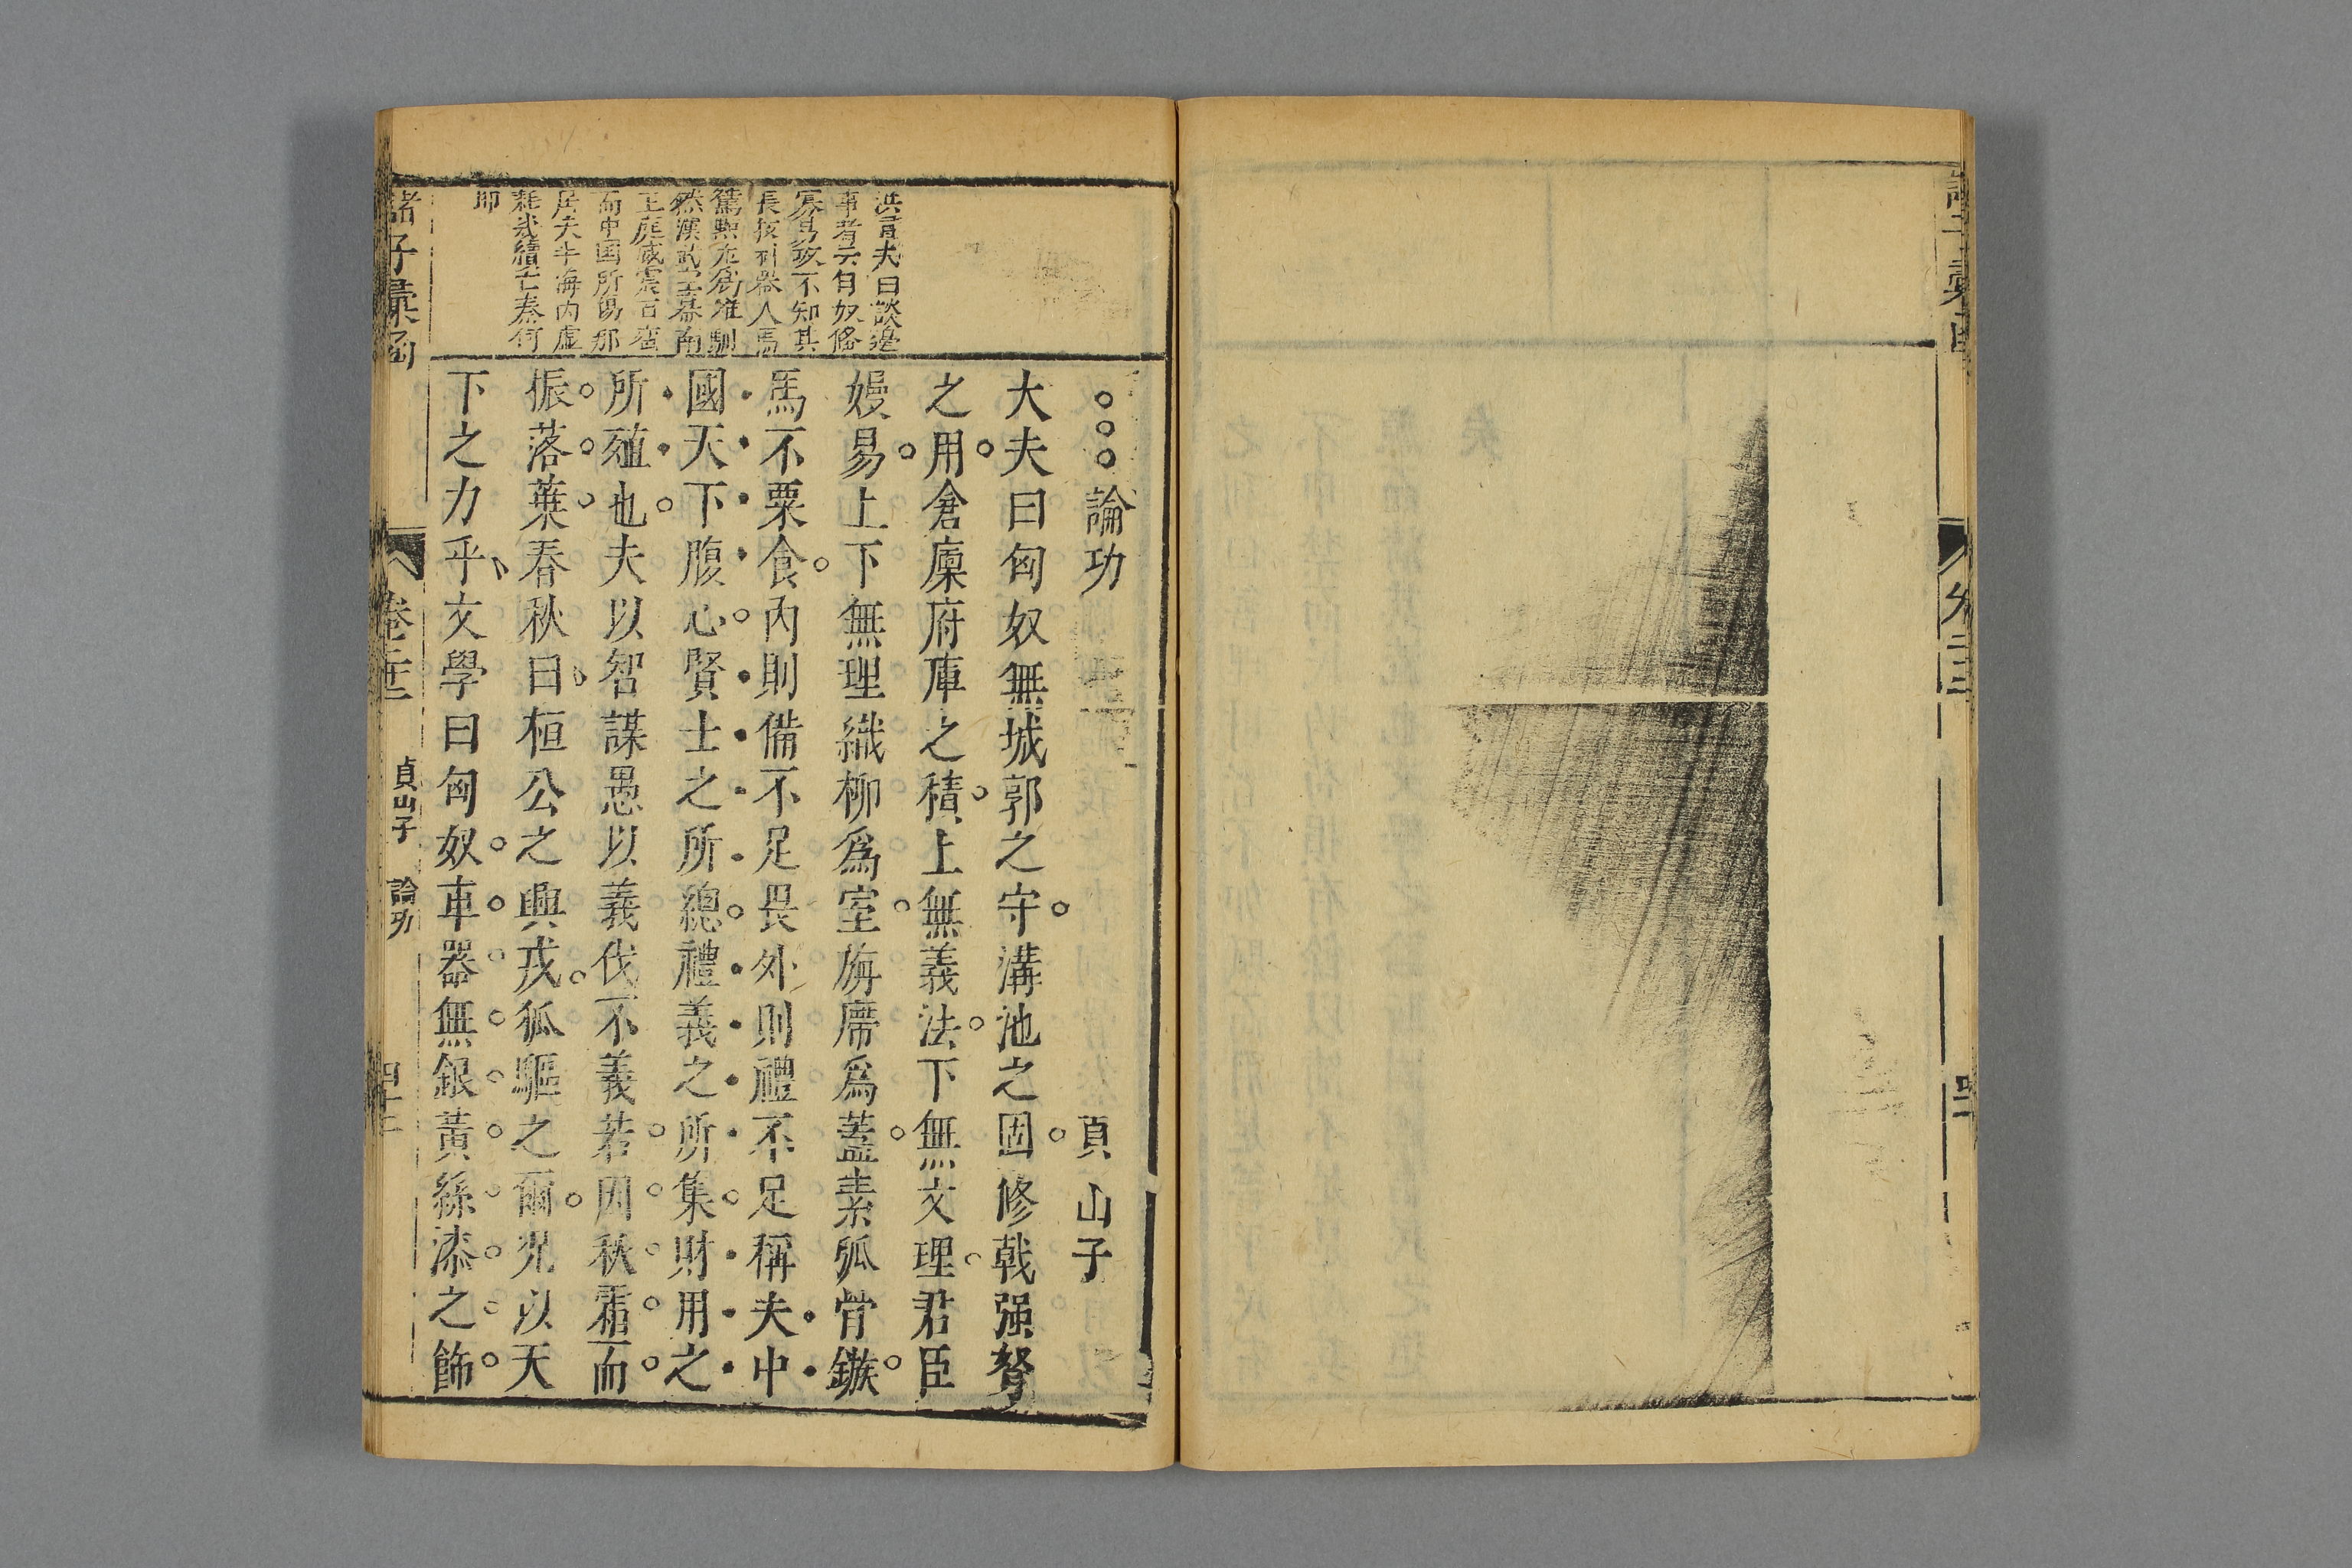 論功　貞山子
大夫曰匈奴無城郭之守溝池之固修戟强弩
之用倉廩府庫之積上無義法下無文理君臣
嫚易上下無理織柳爲室旃席爲蓋素弧骨鏃
馬不粟食內則備不足畏外則禮不足稱夫中
國天下腹心賢士之所總禮義之所集財用之
所殖也夫以智謀愚以義伐不義若因秋霜而
振落葉春秋曰桓公之與戎狄驅之爾况以天
下之力乎文學曰匈奴車器無銀黃絲漆之飾
洪容夫曰談邊
事者云匈奴俗
寡易攻不知其
長技利器人馬
然漢武空幕南
王庭威震百蠻
而中国所傷那
居夫半海內虛
耗幾續亡秦何
即
諸子彙函
卷二十三
貞山子
論功
四十二